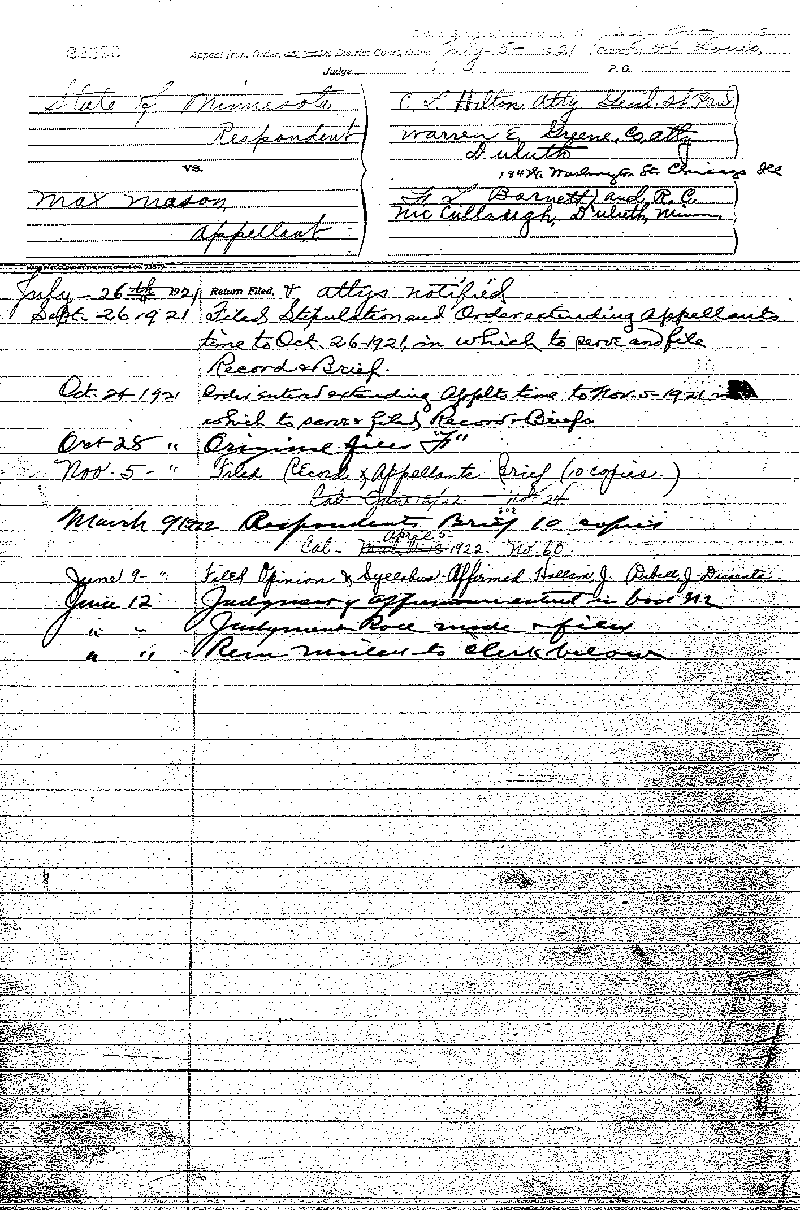 Appeal from Order District Court, July 5- 1921 County St Louis,
Judge P.O.
State of Minnesota
Respondent
vs.
Max Mason
Appellant
C L Hilton Atty Genl. St Paul
Warren E. Greene, Co atty
Duluth
184 W. Washington St. Chicago Ill
F L Barnett, and R. C.
McCullough, Duluth, Minn.
July - 26th 1921 Return Filed, & attys notified
Sept. 26 1921 Filed Stipulation and Order extending Appellants
time to Oct. 26-1921, in which to serve and file
Record & Brief.
Oct. 24-1921 Order extending Applts time to Nov. 5-1921 in
which to serve & file Record & Briefs
Oct 28 " Original files "F"
Nov. 5 - " Filed Record & Appellants Brief (10 copies)
Cal- June No. 24
March 9 1922 Respondents Brief 10 copies
Cal- April 5- 1922 No. 60
June 9- " Filed Opinion & Syllabus- Affirmed Hallam J. Dibell J Dissents
June 12 Judgment of affirmance entered in book M2
" " Judgment Roll made & filed
" " Rem mailed to Clerk below